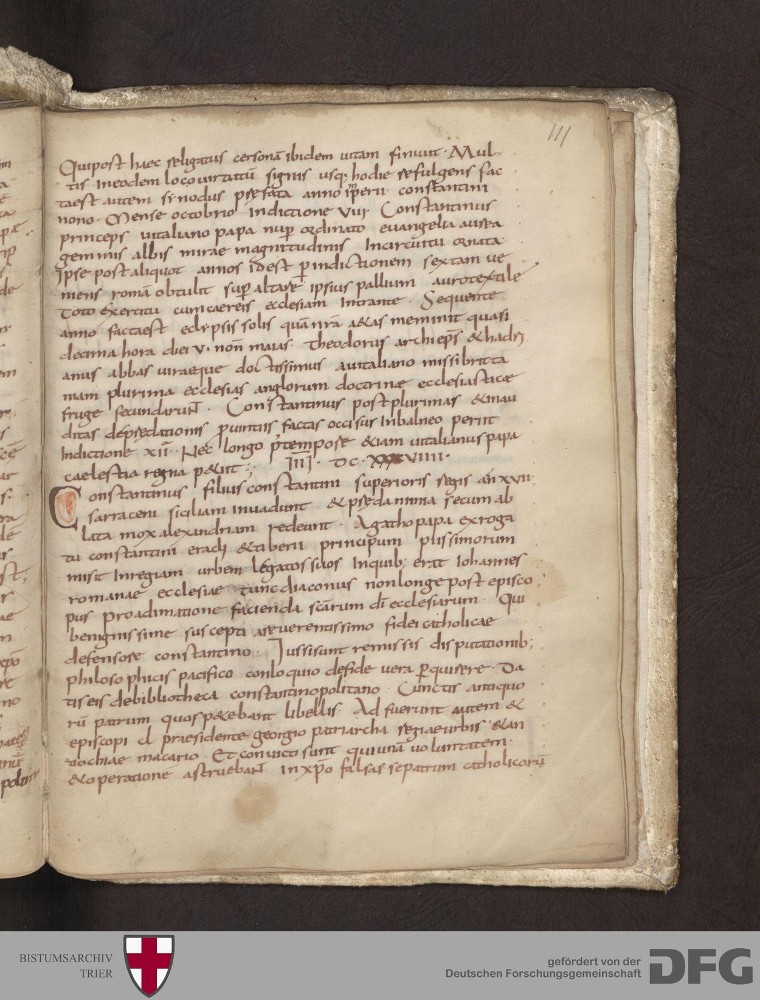 111
Qui post haec religatus cersonā ibidem uitam finiuit · Mul
tis in eodem loco uirtutū signis usq; hodie refulgens fac
ta est autem synodus praefata anno imperii constantini
nono · Mense octobrio Indictione VIIII · Constantinus
princeps uitaliano papa nup ordinato euangelia aurea
gemmis albis mirae magnitudinis In circuitu ornata
Ipse post aliquot annos id est p indictionem sextam ue
niens romā obtulit sup altare ipsius pallium auro textile
Toto exercitu cum caereis ecclesiam Intrante · Sequente
anno facta est eclypsis solis quā nrā aetas meminit quasi
decima hora diei V · non maias · Theodorus archieps & hadri
anus abbas uir aeque doctissimus a uitaliano missi britta
niam plurima ecclesias anglorum doctrinae ecclesiasticae
fruge fecundarunt · Constantinus post plurimas & inau
ditas depraedationis puintiis factas occisus In balneo periit
Indictione XII · Nec longo p tempore etiam uitalianus papa
caelestia regna petiit · IIII · DC · XXXVIIII ·
Constantinus filius constantini superioris regis an XVII
sarraceni siciliam inuadunt & praeda nimia secum ab
lata mox alexandriam redeunt · Agatho papa ex roga
tu constantini eracli & tiberii principum piissimorum
misit In regiam urbem legatos suos In quib; erat Iohannes
romanae ecclesiae tunc diaconus non longe post episco
pus pro adunatione facienda scārum dī ecclesiarum · Qui
benignissime suscepti a reuerentissimo fidei catholicae
defensore constantino · Iussi sunt remissis disputationib;
philosophicis pacifico conloquio de fide uera pquirere · Da
tis eis de bibliotheca constantinopolitano · Cunctis antiquo
rū patrum quos petebant libellis · Ad fuerunt autem &
episcopi cl praesidente georgio patriarcha regiae urbis & an
tiochiae macario · Et conuicti sunt qui unā uoluntatem
& operatione astruebant in xpo falsasse patrum catholicorū
BISTUMSARCHIV
TRIER
gefördert von der
Deutschen Forschungsgemeinschaft
DFG